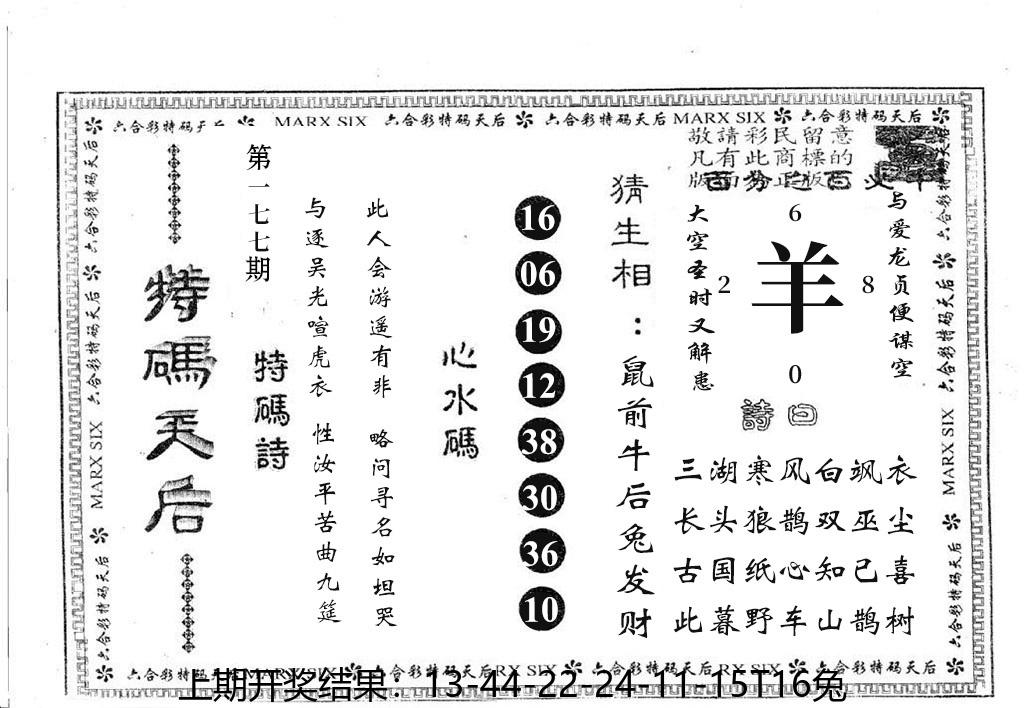 六合彩特码天后 MARX SIX 六合彩特码天后 六合彩特码天后 MARX SIX 六合彩特码天后
敬請彩民留意
凡有此商標的
特碼天后
第一七七期
特碼詩
与逐吴光喧虎衣 性汝平苦曲九筵
此人会游遥有非 略问寻名如坦哭
心水碼
16
06
19
12
38
30
36
10
猜生相：鼠前牛后兔发财
大空圣时又解惠
6
2 羊 8
0
与爱龙贞便谋空
詩曰
三湖寒风白飒衣
长头狼鹊双巫尘
古国纸心知已喜
此暮野车山鹊树
六合彩特码天后 MARX SIX 六合彩特码天后
六合彩特码天后 MARX SIX 六合彩特码天后
上期开奖结果：13-44-22-24-11-15T16兔